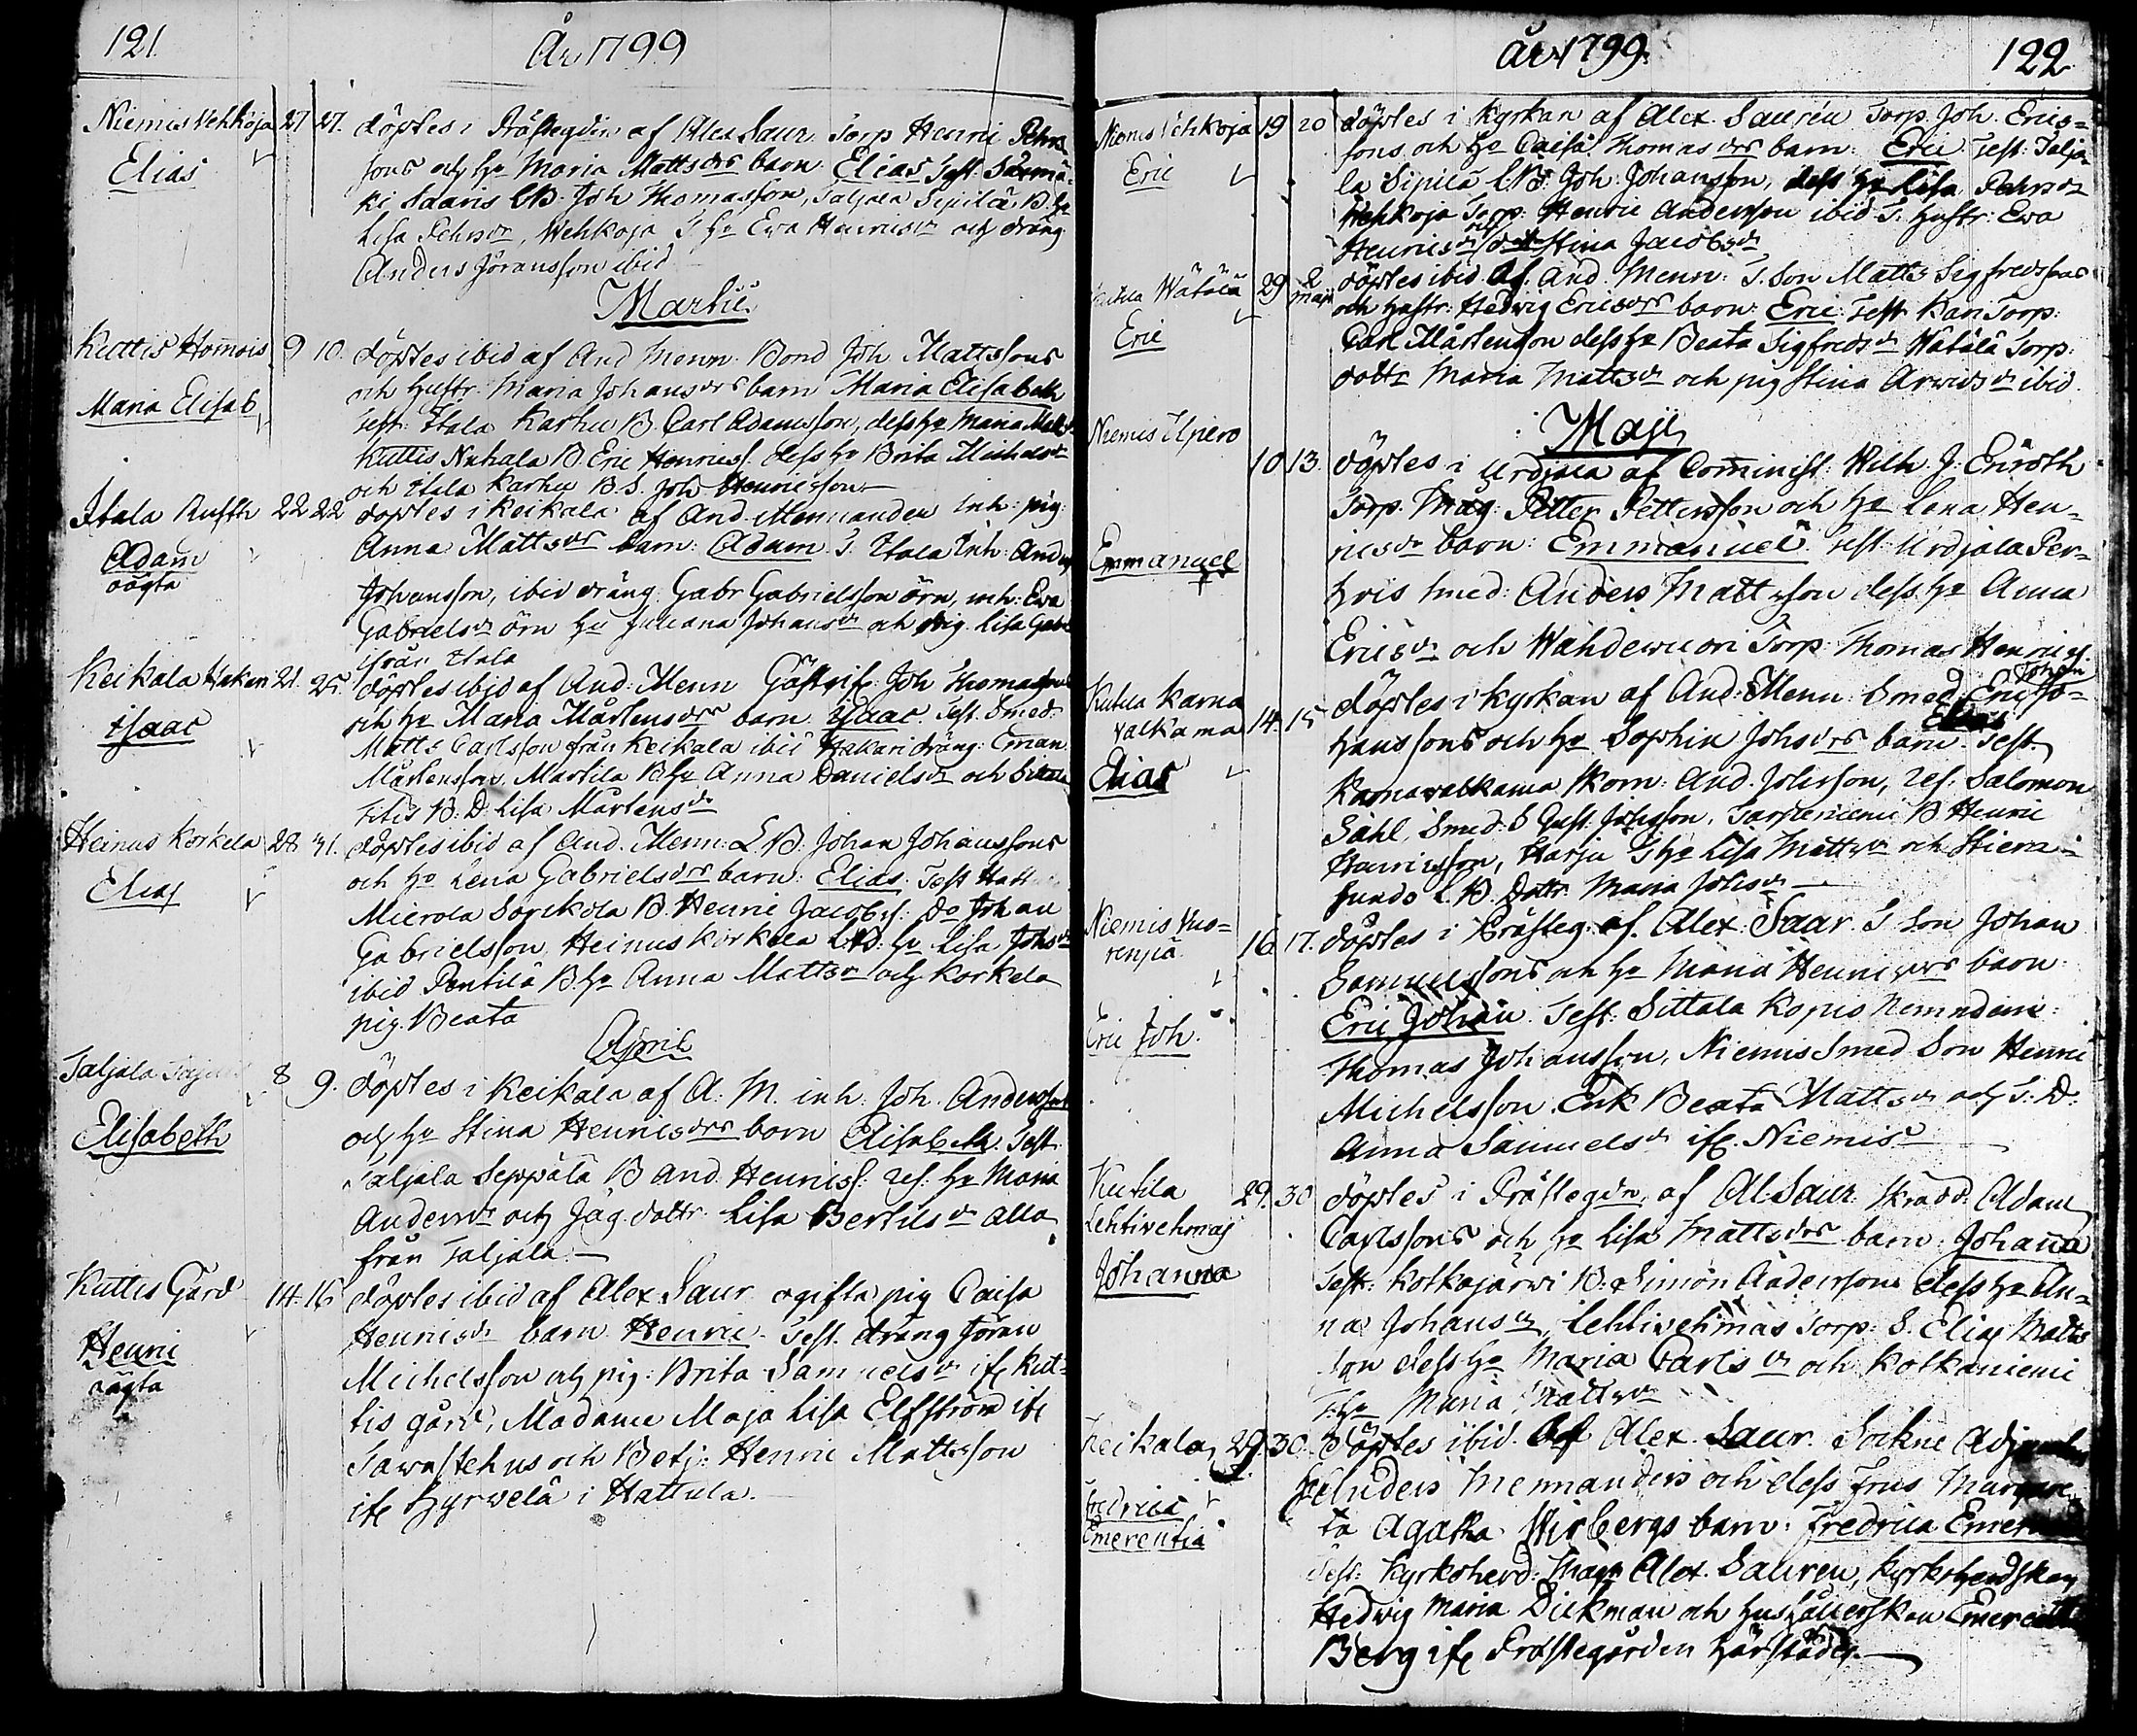 121
År 1799
Niemis Vehkoja 27 27. döptes i Prästegdn af Alex Saur. Torp Henric Pehrs
Elias
sons och hu Maria Mattsdrs barn Elias Test: Sääxmä-
ki Saaris LB. Joh Thomasson, Taljala Sipilä B. hu
Lisa Pehrsdr, Wehkoja T. hu Eva Henricsdr och dräng
Anders Jöransson ibid
Martii
Kuttis Homois 9 10. döptes ibid af And Menn. Bond Joh Mattssons
Maria Elisab.
och hustr. Maria Johansdrs barn Maria Elisabeth
Test: Itala Karhu B. Carl Adamsson, dess hu Maria Matts
Kuttis Nuhala B. Eric Henrics. dess hu Brita Michelsdr
och Itala Karhu B. S. Joh. Henricsson
Itala Rusth 22 22 döptes i Keikala af And. Mennander inh: pig:
Adam
oägta
Anna Mattsdrs barn: Adam T. Itala Inh: And
Johansson, ibid dräng Gabr Gabrielsson örn, inh: Eva
Gabrielsdr örn hu Juliana Johansdr och pig. Lisa Gabr
ifrån Itala
Keikala Hakari 21. 25. döptes ibid af And: Menn Gästgif. Joh Thomassons
Isaac
och hu Maria Mårtensdrs barn Isaac. Test. Smed:
Matts Carlsson från Keikala ibid Hakari dräng: Eman
Mårtensson, Martila B hu Anna Danielsdr och Sittala
Titis B. D. Lisa Mårtensdr
Heinus Korkela 28 31. döptes ibid af And. Menn: L B. Johan Johanssons
Elias
och hu Lena Gabrielsdrs barn: Elias. Test Hatt
Mierola Sorikola B. Henric Jacobs: Do Johan
Gabrielsson, Heinus Korkela LB. hu Lisa Johsdr
ibid Pentilä B. hu Anna Mattsdr och Korkela
pig. Beata
April
Taljala 8 9. döptes i Keikala af A. M. inh: Joh. Anderssons
Elisabeth
och hu Stina Henricsdrs barn Elisabeth. Test
Taljala Seppälä B And. Henrics: Ref. hu Maria
Andersdr och Jäg. dottr Lisa Bertilsdr alla
från Taljala.
Kuttis Gård 14. 16 döptes ibid af Alex Saur ogifta pig Caisa
Henric
oägta
Henricsdr barn Henric. Test. dräng Jöran
Michelsson och pig: Brita Samuelsdr ifr Kut-
tis gård, Madame Maja Lisa Elfström ifr
Tawastehus och Betj: Henric Mattsson
ifr Hyrwelä i Hattula.
år 1799.
122
Niemis Vehkoja 19 20 döptes i Kyrkan af Alex. Saurén Torp. Joh. Erics-
Eric
sons och hu Caisa Thomasdrs barn: Eric Test: Talja-
la Sipilä LB. Joh. Johansson, dess hu Lisa Pehrsdr
Wehkoja Torp: Henric Andersson ibid T. hustr: Eva
Henricsdr och Stina Jacobsdr
Kutila Wätälä 29 2 maji döptes ibid af And. Menn: T. Son Matts Sigfredssons
Eric
och hustr. Hedvig Ericsdrs barn: Eric: Test. Kari Torp:
Carl Mårtenson dess hu Beata Sigfredsdr Wätälä Torp:
dottr Maria Mattsdr och pig Stina Arwidsdr ibid.
Maji
Niemis Ilpero
10 13. döptes i Urdjala af Comminist: Wilh. J: Eneroth
Torp. Måg: Petter Pettersson och hu Lena Hen-
Emmanuel
ricsdr barn: Emmanuel. Test: Urdjala Per-
hois Smed: Anders Mattsson dess hu Anna
Ericsdr och Wahdewuori Torp. Thomas Henrics.
Kutila Karna
valkama 14. 15 döptes i Kyrkan af And: Menn Smed Eric Jo-
Elias
hanssons och hu Sophia Johsdrs barn Elias Test.
Karnavalkama Skom: And. Johsson, Ref: Salomon
Ståhl, Smed: S Gust. Johsson, Tarpianiemi B Henric
Henricsson, Harju T hu Lisa Mattsdr och Stiern-
sunds L. B. Dottr. Maria Johsdr
Niemis Vuo-
renpää 16 17. döptes i Prästeg. af Alex: Saur. T Son Johan
Samuelssons och hu Maria Henricsdrs barn
Eric Joh.
Eric Johan. Test: Sittala Kopis Nemndem:
Thomas Johansson, Niemis Smed Son Henric
Michelsson Enk Beata Mattsdr och T. D.
Anna Samuelsdr ifr. Niemis
Kutila 29. 30 döptes i Prästegdn af Al: Saur: Skradd. Adam
Lehtivehmas
Carlssons och hu Lisa Mattsdrs barn: Johanna
Johanna
Test: Kotkajärwi B. Simon Andersson dess hu An-
na Johansdr, Lehtivehmas Torp: S. Elias Matts
son dess hu Maria Carlsdr och Kotkaniemi
T. hu Maria Mattsdr
Keikala, 29. 30. döptes ibid. Af Alex. Saur. Sockne Adjunkten
Anders Mennanders och dess Frus Margare-
Fredrica
Emerentia
ta Agatha Wirbergs barn: Fredrica Emerentia
Test: Kyrkoherd: Mag Alex. Sauren, Kyrkoherdskan
Hedvig Maria Dickman och hushållerskan Emerentia
Berg ifr Prästegården härstädes.